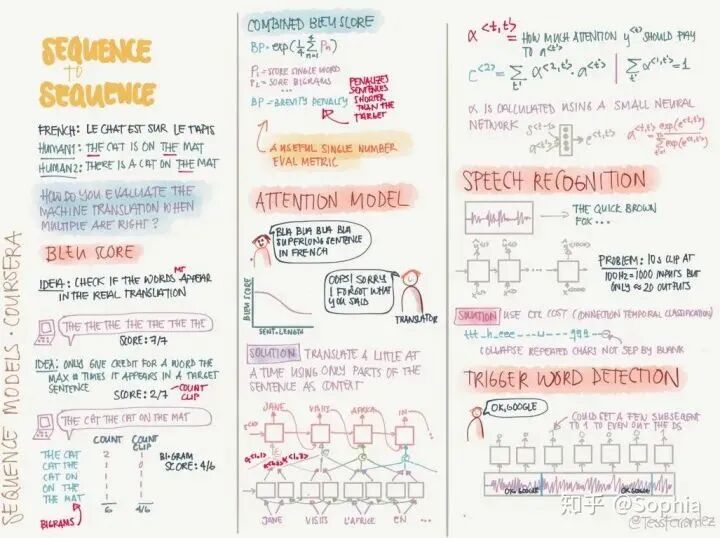 SEQUENCE
TO
SEQUENCE
FRENCH: LE CHAT EST SUR LE TAPIS
HUMAN1: THE CAT IS ON THE MAT
HUMAN2: THERE IS A CAT ON THE MAT
HOW DO YOU EVALUATE THE
MACHINE TRANSLATION WHEN
MULTIPLE ARE RIGHT?
BLEU SCORE
IDEA: CHECK IF THE WORDS MT APPEAR
IN THE REAL TRANSLATION
THE THE THE THE THE THE THE
SCORE: 7/7
IDEA: ONLY GIVE CREDIT FOR A WORD THE
MAX # TIMES IT APPEARS IN A TARGET
SENTENCE
SCORE: 2/7
COUNT
CLIP
THE CAT THE CAT ON THE MAT
COUNT
COUNT
CLIP
THE CAT 2 1
CAT THE 1 0
CAT ON 1 1
ON THE 1 1
THE MAT 1 1
6 4/6
BIGRAM
SCORE: 4/6
BIGRAMS
SEQUENCE MODELS · COURSERA
COMBINED BLEU SCORE
BP · exp(1/4 Σ Pn)
n=1
4
P1 = SCORE SINGLE WORD
P2 = SCORE BIGRAMS
...
BP = BREVITY PENALTY
PENALIZES
SENTENCES
SHORTER
THAN THE
TARGET
A USEFUL SINGLE NUMBER
EVAL METRIC
ATTENTION MODEL
BLA BLA BLA BLA
SUPERLONG SENTENCE
IN FRENCH
BLEU SCORE
SENT. LENGTH
OOPS! SORRY
I FORGOT WHAT
YOU SAID
TRANSLATOR
SOLUTION TRANSLATE A LITTLE AT
A TIME USING ONLY PARTS OF THE
SENTENCE AS CONTEXT
JANE VISITS AFRICA IN ...
JANE VISITS L'AFRICE EN ...
α<t,t'> = HOW MUCH ATTENTION y<t> SHOULD PAY
TO a<t'>
c<2> = Σ α<2,t'> · a<t'> | Σ α<1,t'> = 1
t' t'
α IS CALCULATED USING A SMALL NEURAL
NETWORK
s<t-1>
a<t'>
e<t,t'>
SPEECH RECOGNITION
THE QUICK BROWN
FOX ...
PROBLEM: 10s CLIP AT
100HZ = 1000 INPUTS BUT
ONLY ≈ 20 OUTPUTS
SOLUTION USE CTC COST (CONNECTION TEMPORAL CLASSIFICATION)
COLLAPSE REPEATED CHARS NOT SEP BY BLANK
TRIGGER WORD DETECTION
OK, GOOGLE
COULD SET A FEW SUBSEQENT
TO 1 TO EVEN OUT THE DS
0 0 1 0 0 1 0
OK GOOGLE
OK GOOGLE
知乎 @Sophia
@TessFerrandez